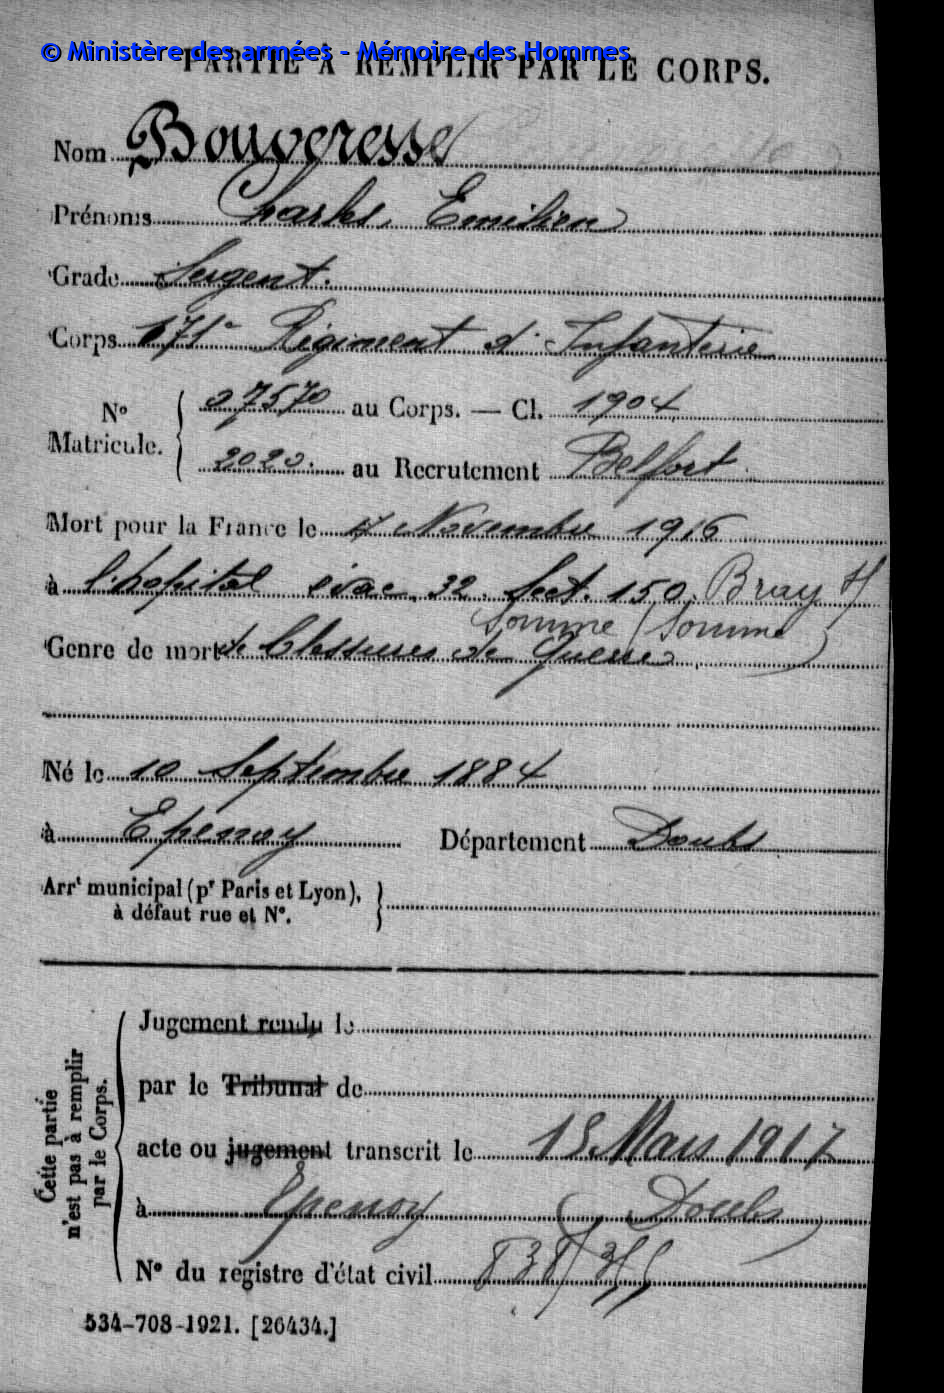 © Ministère des armées - Mémoire des Hommes
PARTIE À REMPLIR PAR LE CORPS.
Nom Bouveresse
Prénoms Charles, Emilien
Grade Sergent.
Corps 171e Régiment d'Infanterie
No Matricule. 07570 au Corps. — Cl. 1904
2020. au Recrutement Belfort
Mort pour la France le 17 Novembre 1916
à l'hopital évac. 32. Sect. 150. Bray s/
Somme (Somme)
Genre de mort de blessures de Guerre
Né le 10 Septembre 1884
à Epenoy Département Doubs
Arrt municipal (pr Paris et Lyon),
à défaut rue et No.
Cette partie n'est pas à remplir par le Corps.
Jugement rendu le
par le Tribunal de
acte ou jugement transcrit le 15 Mars 1917
à Epenoy (Doubs)
No du registre d'état civil
534-708-1921. [26434.]